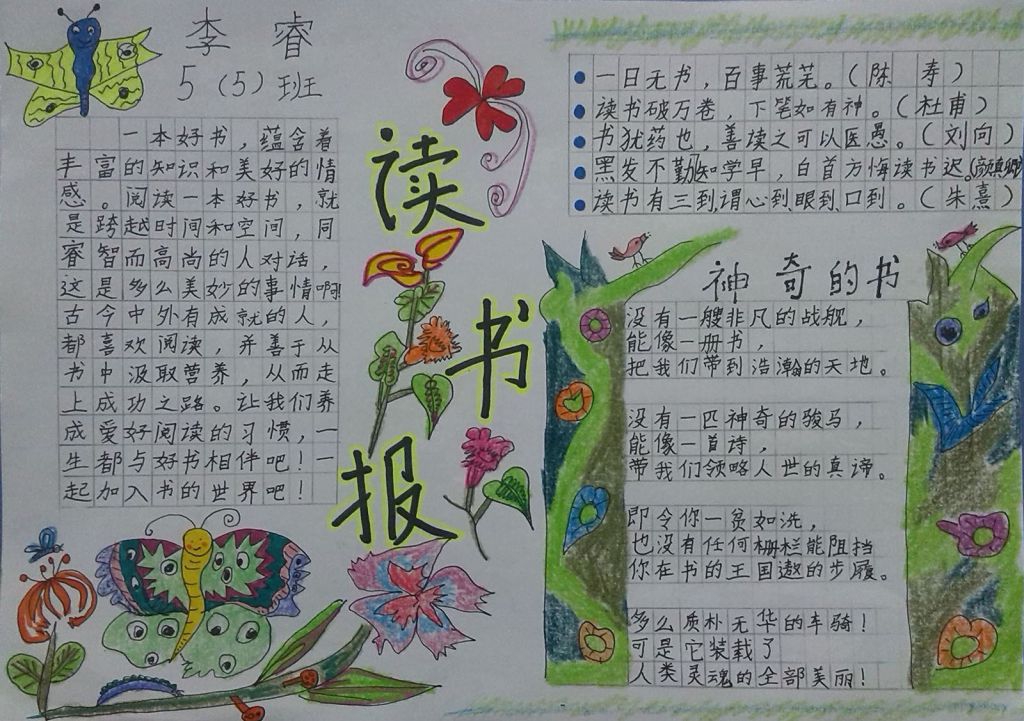 李 睿
5（5）班
一本好书，蕴含着
丰富的知识和美好的情
感。阅读一本好书，就
是跨越时间和空间，同
睿智而高尚的人对话，
这是多么美妙的事情啊!
古今中外有成就的人，
都喜欢阅读，并善于从
书中汲取营养，从而走
上成功之路。让我们养
成爱好阅读的习惯，一
生都与好书相伴吧！一
起加入书的世界吧！
读
书
报
一日无书，百事荒芜。（陈 寿）
读书破万卷，下笔如有神。（杜甫）
书犹药也，善读之可以医愚。（刘向）
黑发不勤知学早，白首方悔读书迟。(颜真卿)
读书有三到,谓心到,眼到,口到。（朱熹）
神奇的书
没有一艘非凡的战舰，
能像一册书，
把我们带到浩瀚的天地。
没有一匹神奇的骏马，
能像一首诗，
带我们领略人世的真谛。
即令你一贫如洗，
也没有任何栅栏能阻挡
你在书的王国遨的步履。
多么质朴无华的车骑！
可是它装载了
人类灵魂的全部美丽！